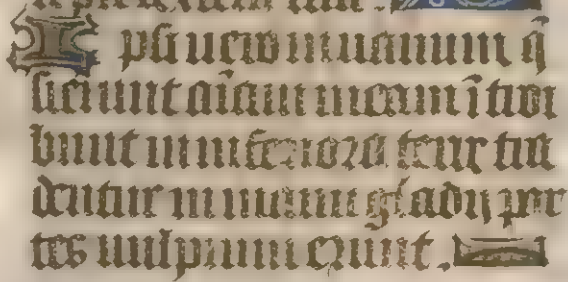 dextera tua.
Ipsi uero in uanum q̄
sierunt aīam meam ītroi
bunt in inferiora terre tra
dentur in manus gladij par
tes uulpium erunt.